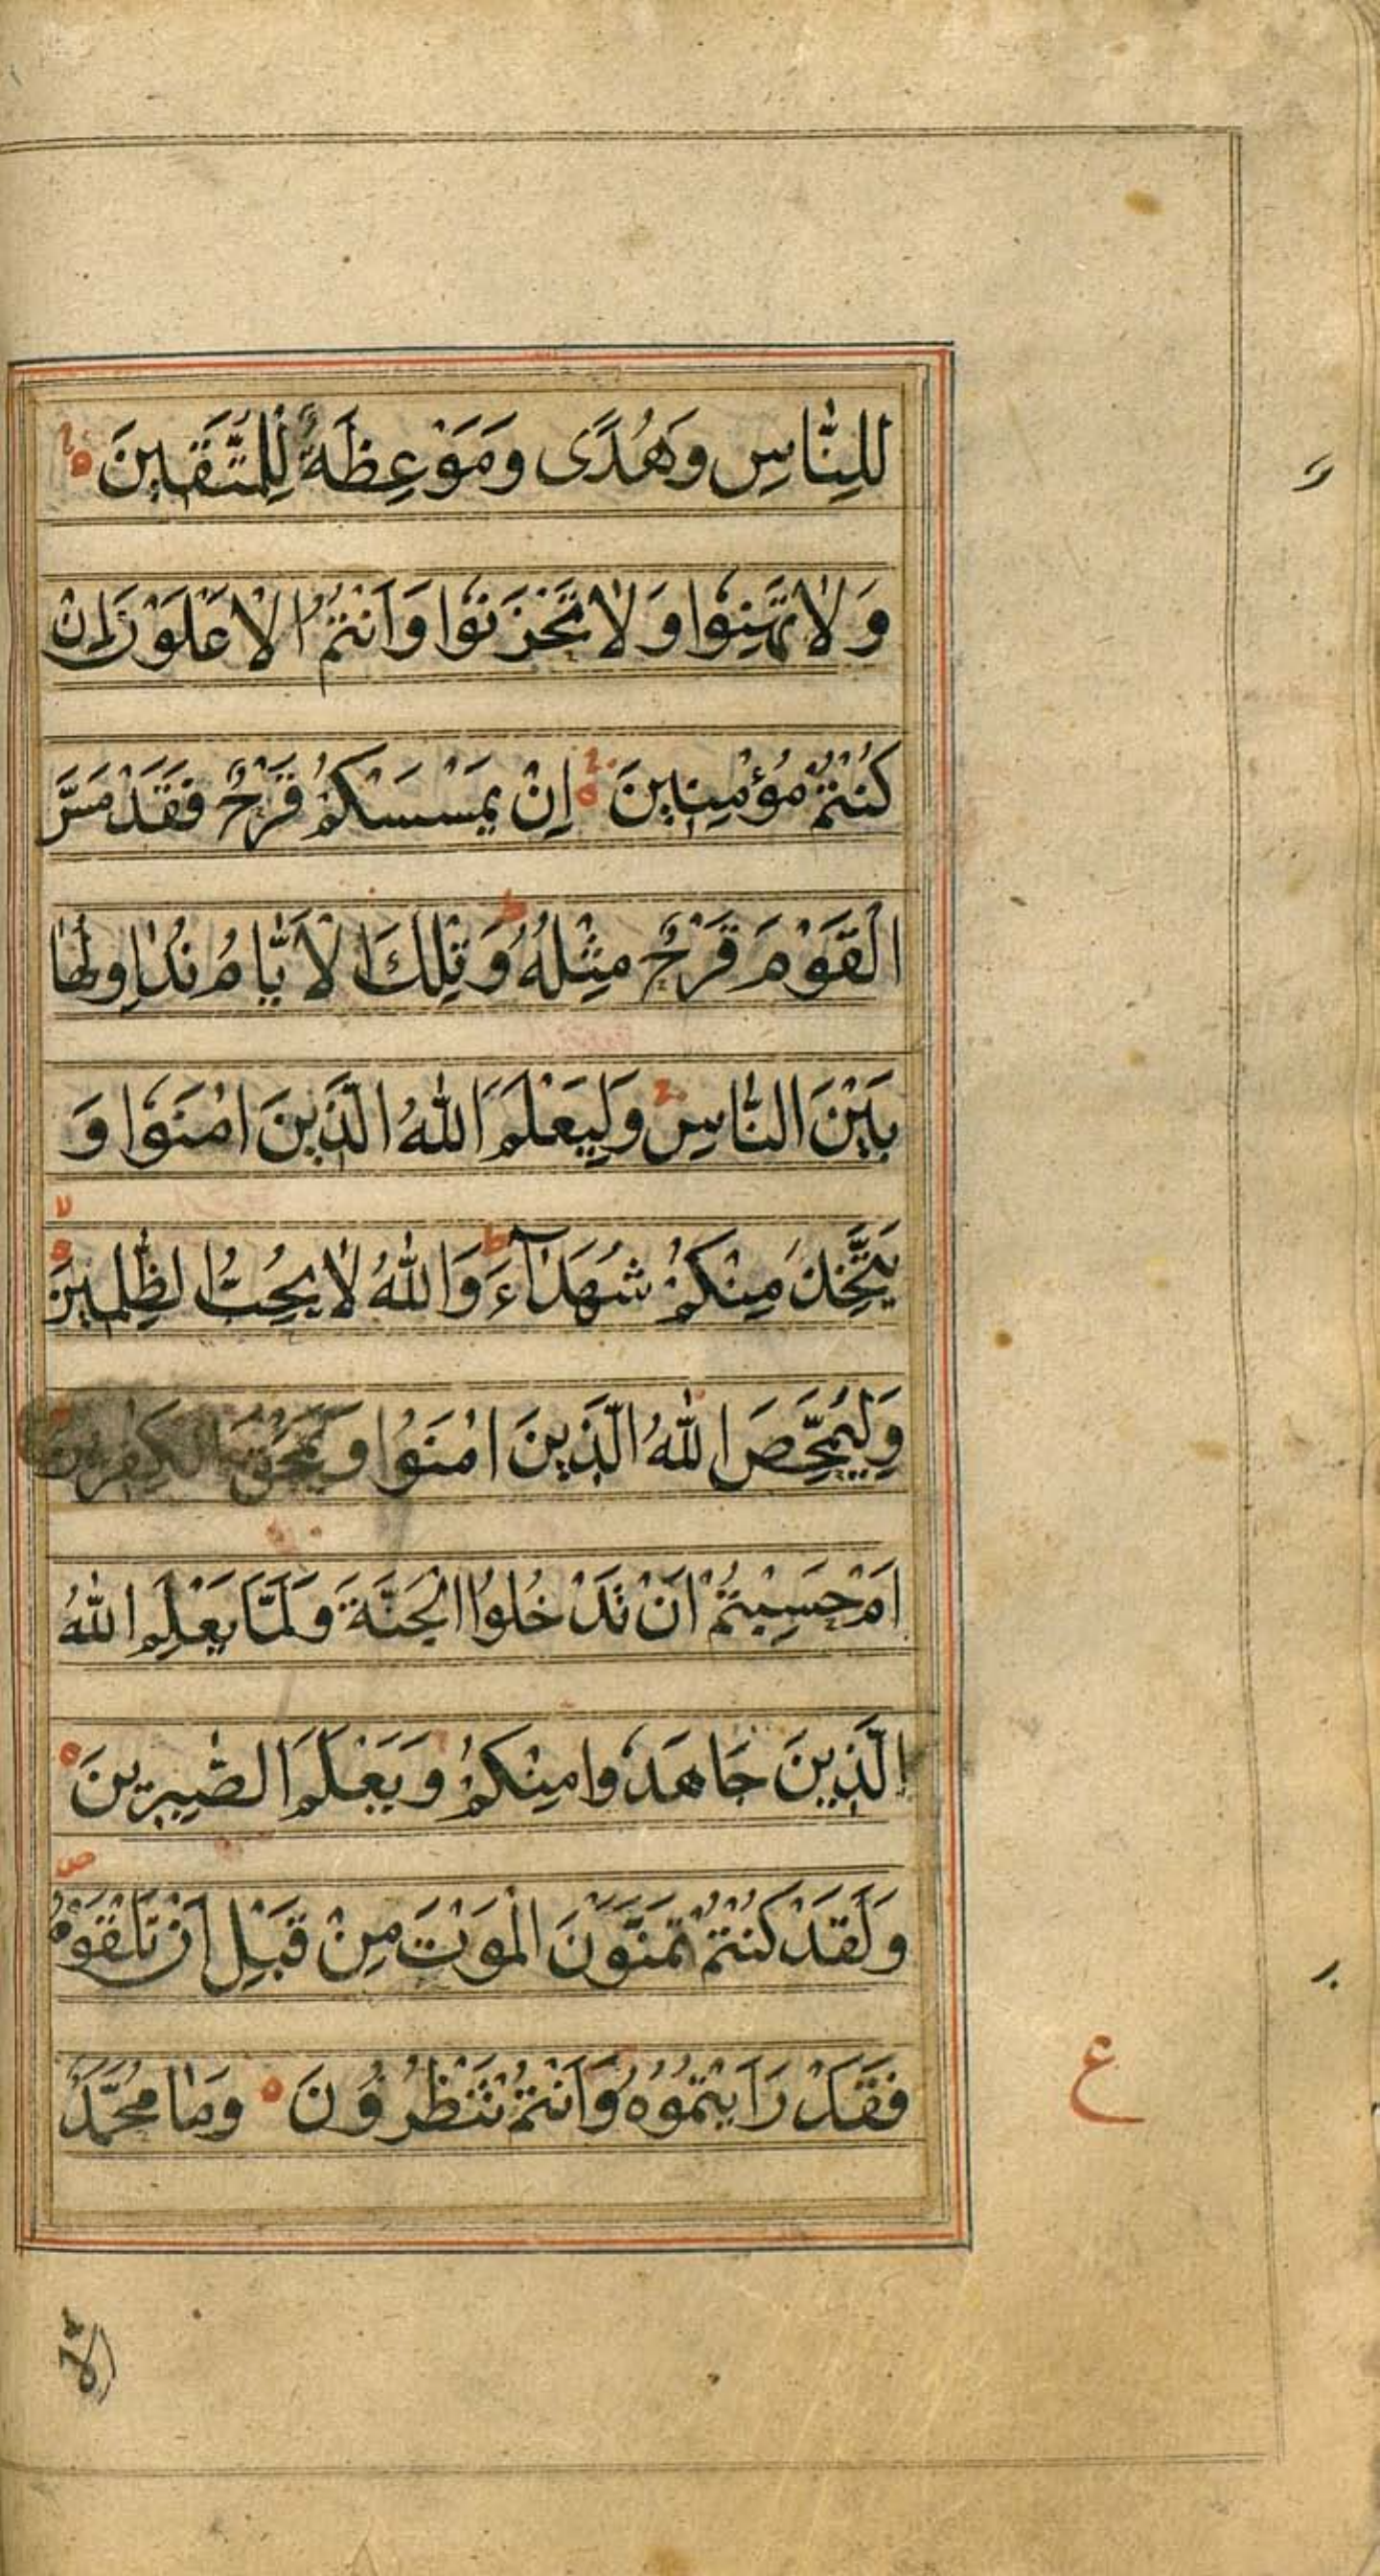 لِلنَّاسِ وَهُدًى وَمَوْعِظَةٌ لِلْمُتَّقِينَ ۝
وَلَا تَهِنُوا وَلَا تَحْزَنُوا وَاَنْتُمُ الْاَعْلَوْنَ اِنْ
كُنْتُمْ مُؤْمِنِينَ ۝ اِنْ يَمْسَسْكُمْ قَرْحٌ فَقَدْ مَسَّ
الْقَوْمَ قَرْحٌ مِثْلُهُ ط وَتِلْكَ الْاَيَّامُ نُدَاوِلُهَا
بَيْنَ النَّاسِ ج وَلِيَعْلَمَ اللّٰهُ الَّذِينَ اٰمَنُوا وَ
يَتَّخِذَ مِنْكُمْ شُهَدَآءَ ط وَاللّٰهُ لَا يُحِبُّ الظّٰلِمِينَ ۝ لا
وَلِيُمَحِّصَ اللّٰهُ الَّذِينَ اٰمَنُوا وَيَمْحَقَ الْكٰفِرِينَ
اَمْ حَسِبْتُمْ اَنْ تَدْخُلُوا الْجَنَّةَ وَلَمَّا يَعْلَمِ اللّٰهُ
الَّذِينَ جَاهَدُوا مِنْكُمْ وَيَعْلَمَ الصّٰبِرِينَ ۝
وَلَقَدْ كُنْتُمْ تَمَنَّوْنَ الْمَوْتَ مِنْ قَبْلِ اَنْ تَلْقَوْهُ ص
فَقَدْ رَاَيْتُمُوهُ وَاَنْتُمْ تَنْظُرُونَ ۝ وَمَا مُحَمَّدٌ
ع
الا